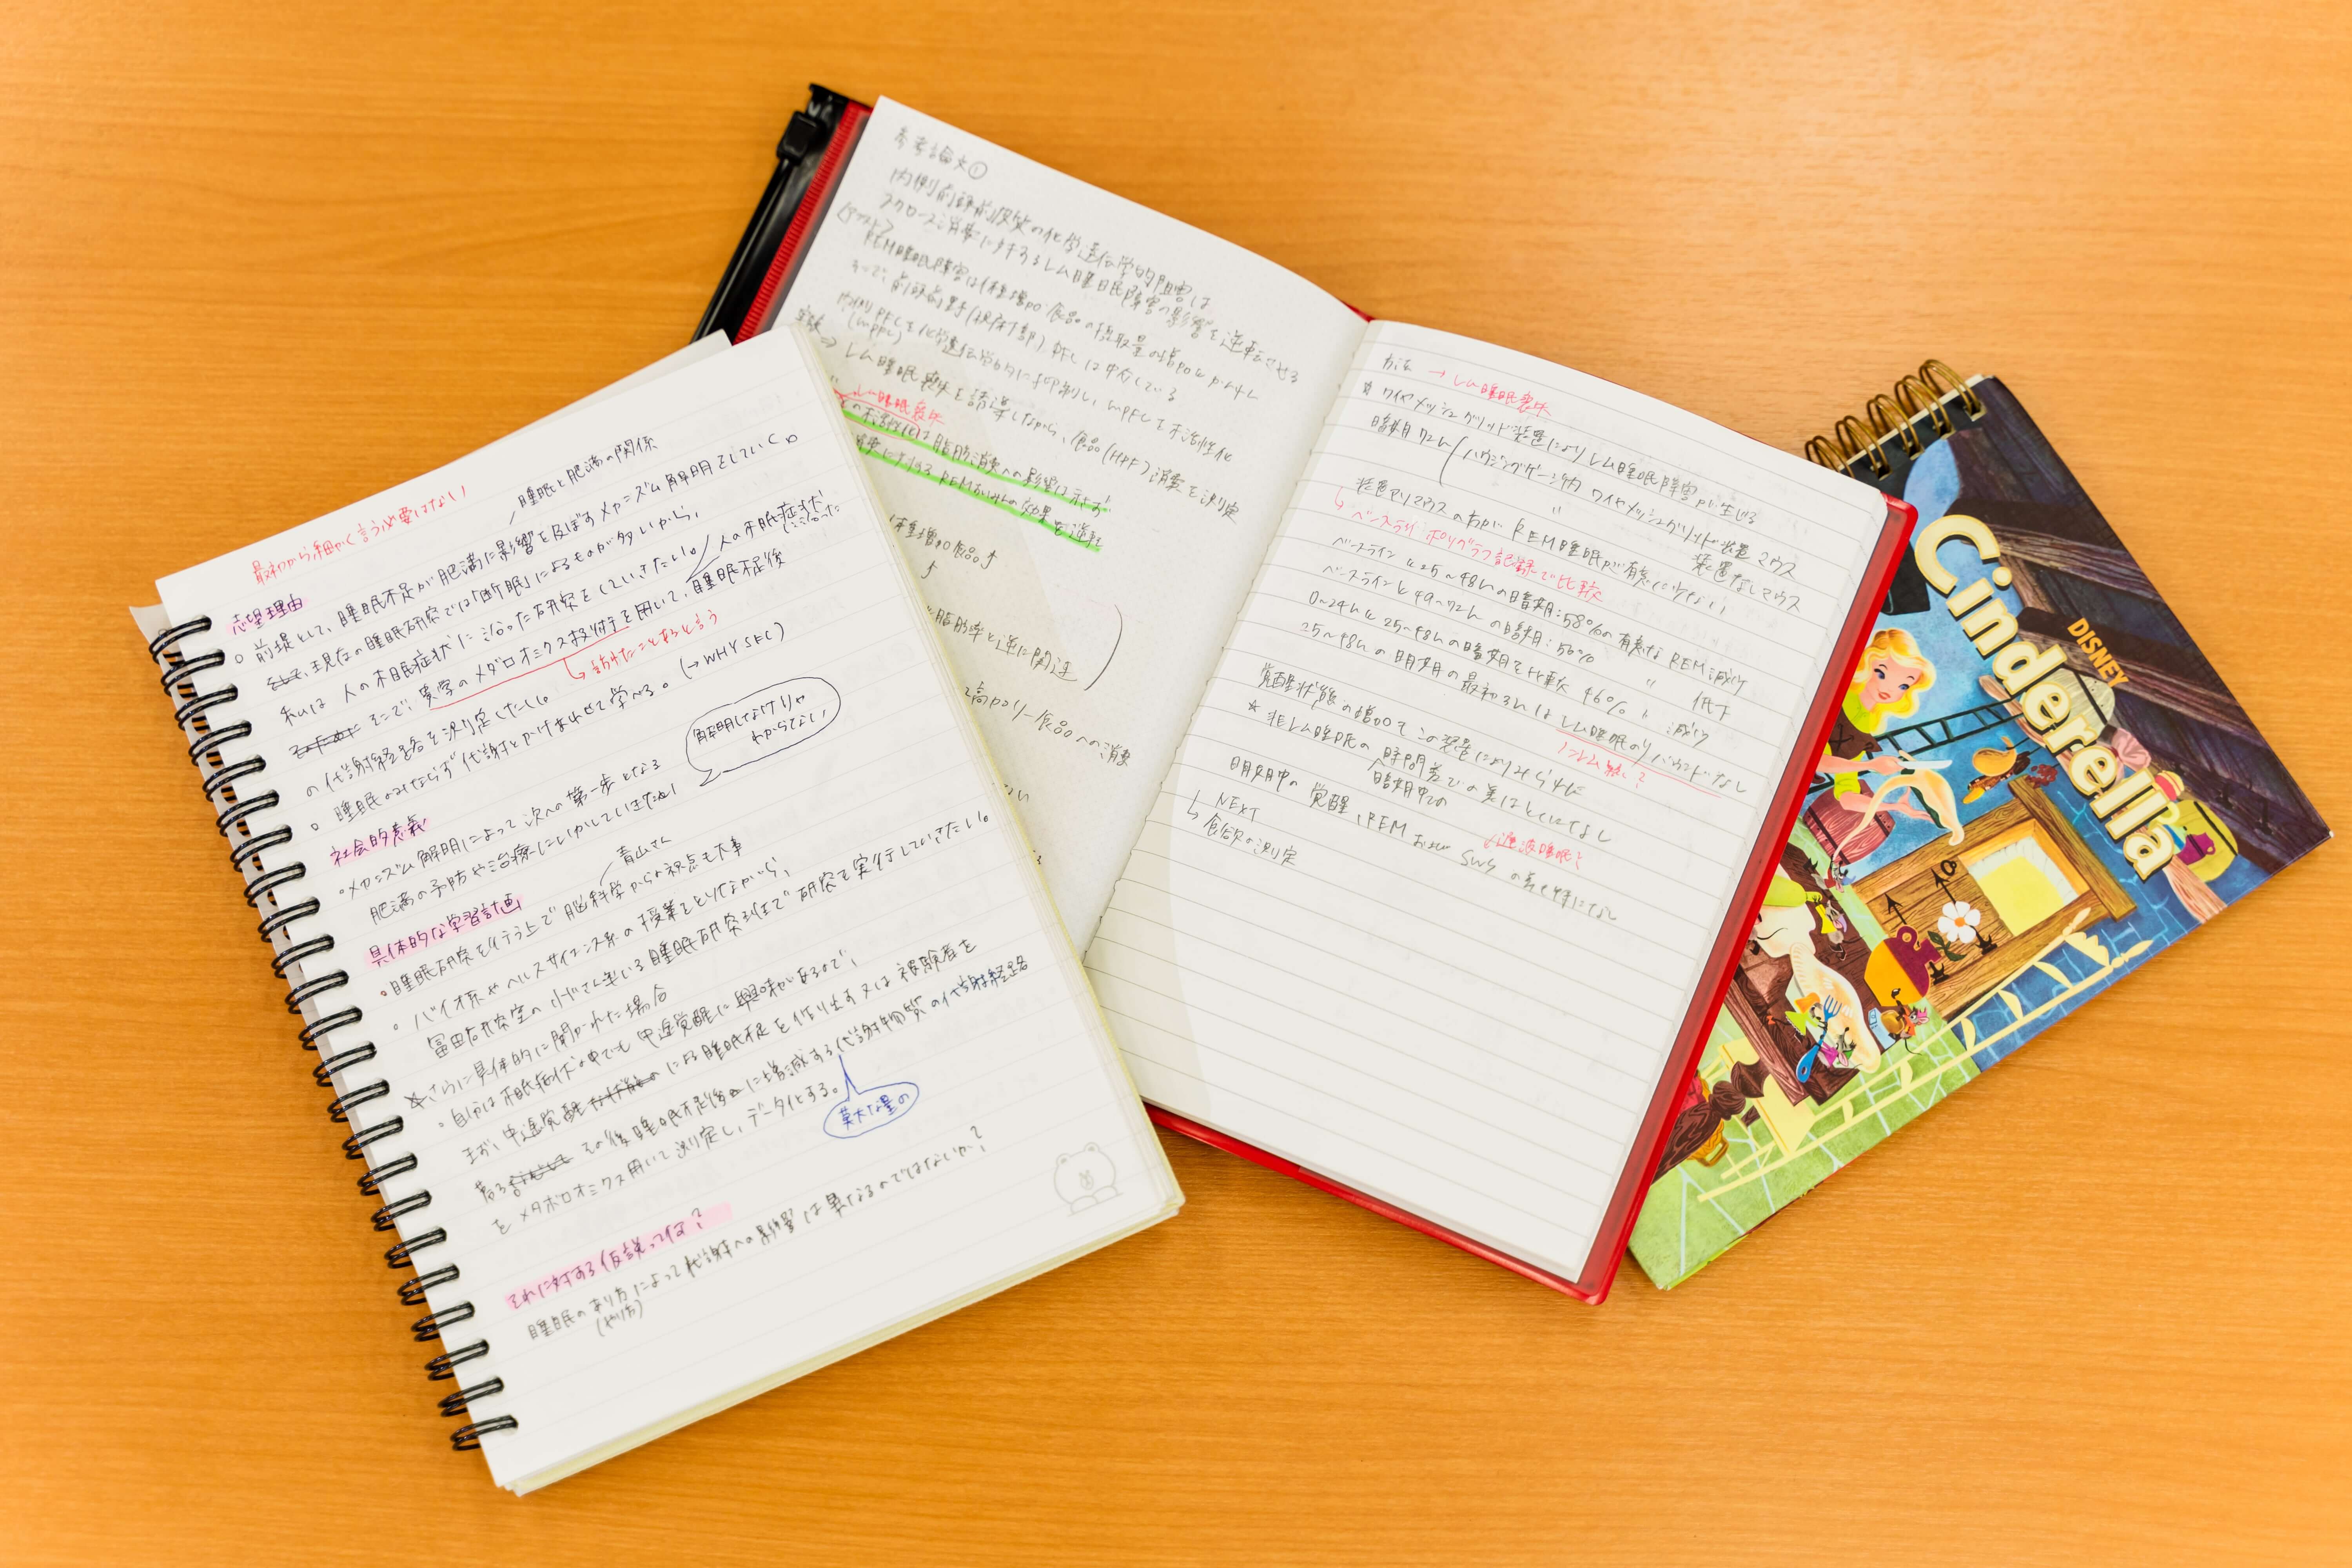 最初から細かく言う必要はない
睡眠と肥満の関係
志望理由
前提として、睡眠不足が肥満に影響を及ぼすメカニズム解明をしていく。
そして、現在の睡眠研究では「断眠」によるものが多いから、
私は人の不眠症状に沿った研究をしていきたい。
人の不眠症状に沿った
そこで、貴学のメタロオミクス技術を用いて、睡眠不足後
訪れたことあると言う
の代謝経路を測定したい。
睡眠のみならず代謝とかけあわせて学べる。(→WHY SFC)
解明しなければ
わからない
社会的意義
・メカニズム解明によって次への第一歩となる
肥満の予防や治療にいかしていきたい
青山さん
具体的な学習計画
・睡眠研究を行う上で脳科学からの視点も大事
・バイオ系やヘルスサイエンス系の授業をとりながら、
冨田研究室の 睡眠研究班で研究を実行していきたい。
さらに具体的に聞かれた場合
・自分は不眠症状の中でも中途覚醒に興味があるので、
まず、中途覚醒 による睡眠不足を作り出す又は被験者を
募る その後睡眠不足後に増減する代謝物質の代謝経路
莫大な量の
をメタボロオミクス用いて測定し、データ化する。
それに対する仮説ってな?
睡眠のあり方によって代謝への影響は異なるのではないか?
(やり方)
参考論文①
内側前頭前皮質の化学遺伝学的阻害は
スクロース消費に対するレム睡眠障害の影響を逆転させる
REM睡眠障害は体重増加・食品の摂取量の増加に
内側PFCを化学遺伝学的に抑制し、mPFCを不活性化
(mPFC)
実験⇒レム睡眠喪失を誘導しながら、食品(HPF)消費を測定
レム睡眠喪失
の不活性化は脂肪消費への影響は示さず
体重増加 食品
脂肪率と逆に関連
高カロリー食品への消費
方法 → レム睡眠喪失
★ワイヤメッシュグリッド装置によりレム睡眠障害が生じる
暗期72h(ハウジングケージ内 ワイヤメッシュグリッド装置 マウス
〃 装置なしマウス
装置アリマウスの方がREM睡眠が有意に少ない
↳ベースラインポリグラフ記録で比較
ベースラインと25〜48hの暗期:58%の有意なREM減少
ベースラインと49〜72hの暗期:56% 〃 低下
0〜24hと25〜48hの暗期を比較 46% 減少
25〜48hの明期の最初3hはレム睡眠のリバウンドなし
覚醒状態の増加もこの装置によりみられた
★非レム睡眠の時間差での差はとくになし
暗期中の
明期中の覚醒、REMおよびSWSの差も特になし
徐波睡眠?
↳NEXT
食欲の測定
DISNEY
Cinderella